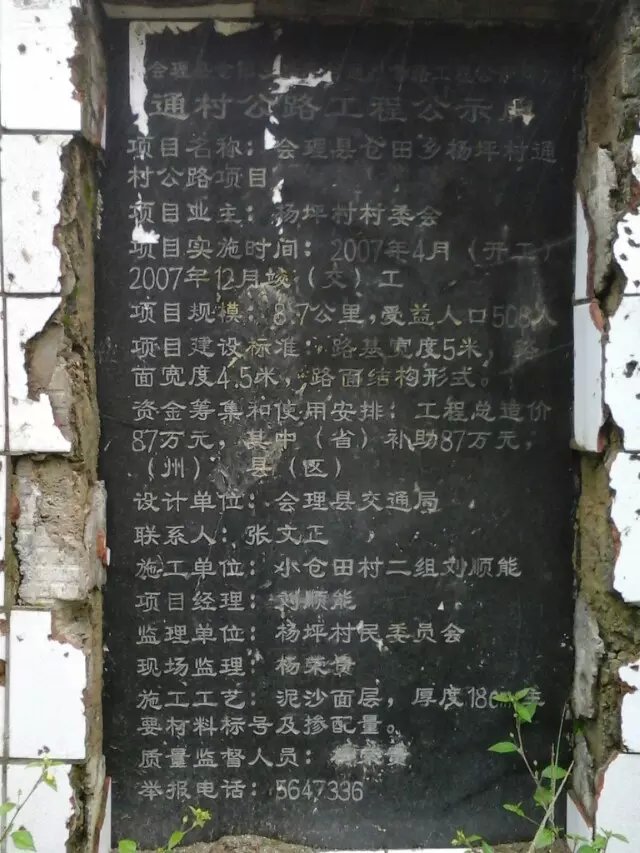 通村公路工程公示牌
项目名称：会理县仓田乡杨坪村通
村公路项目
项目业主：杨坪村村委会
项目实施时间：2007年4月（开工）
2007年12月竣（交）工
项目规模：8.7公里，受益人口508人
项目建设标准：路基宽度5米，路
面宽度4.5米，路面结构形式。
资金筹集和使用安排：工程总造价
87万元，其中（省）补助87万元，
（州） 县（区）
设计单位：会理县交通局
联系人：张文正
施工单位：小仓田村二组刘顺能
项目经理：刘顺能
监理单位：杨坪村民委员会
现场监理：杨荣贵
施工工艺：泥沙面层，厚度18
要材料标号及掺配量。
质量监督人员：荣贵
举报电话：5647336